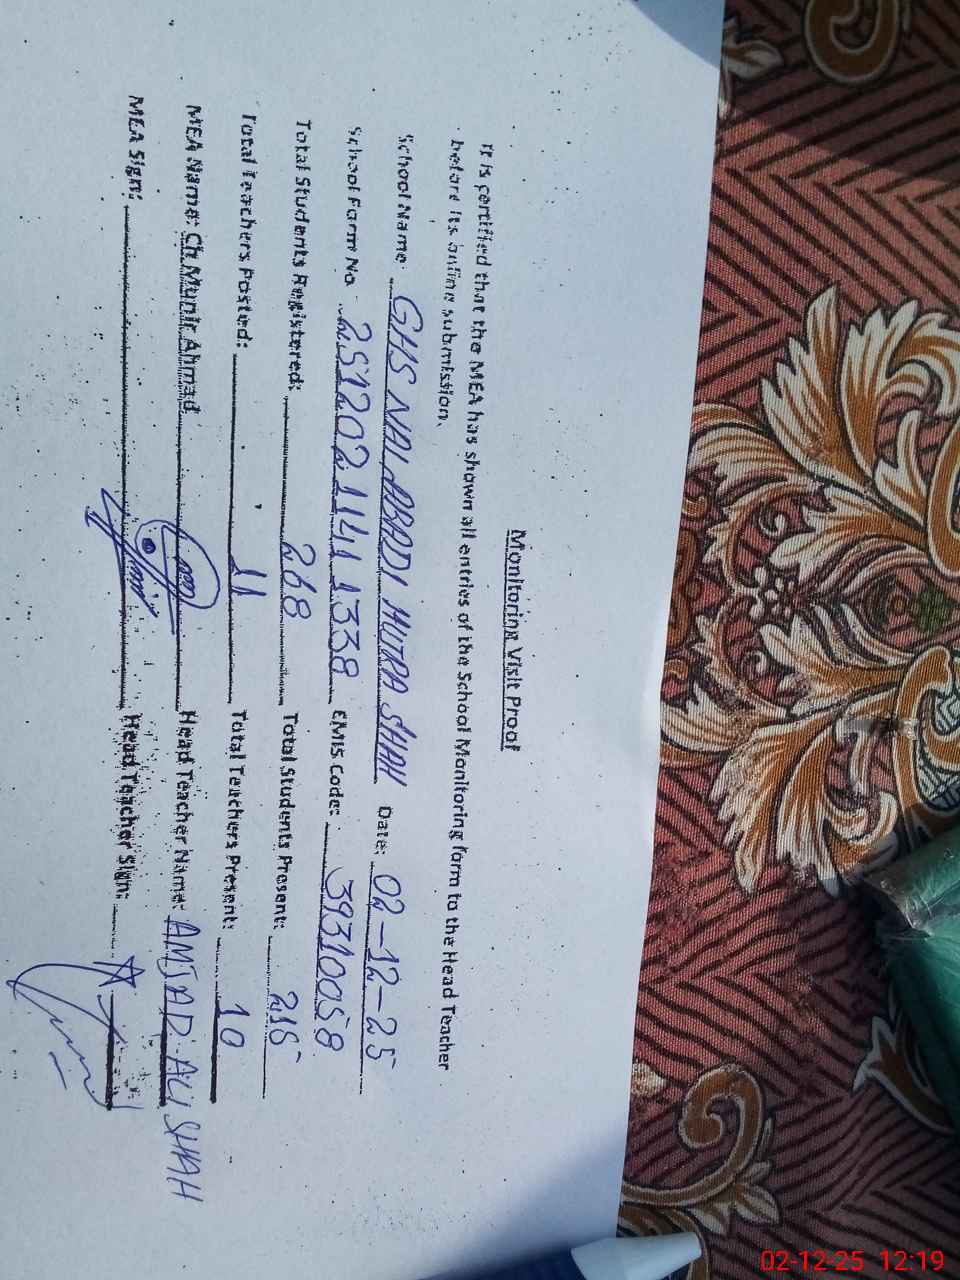 Monitoring Visit Proof
It is certified that the MEA has shown all entries of the School Monitoring form to the Head Teacher
before its online submission.
School Name: GHS NAI ABADI MUTRA SHAH Date: 02-12-25
School Form No. 2512021141 1338 EMIS Code: 39310058
Total Students Registered: 268 Total Students Present: 215
Total Teachers Posted: 11 Total Teachers Present: 10
MEA Name: Ch Munir Ahmad Head Teacher Name: AMJAD ALI SHAH
MEA Sign: Head Teacher Sign:
02-12-25 12:19